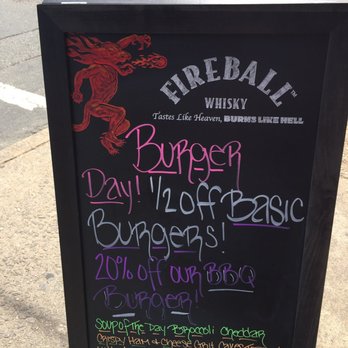 FIREBALL™
WHISKY
Tastes Like Heaven, BURNS LIKE HELL
BURGER
Day! 1/2 OFF BASIC
BURGERS!
20% off our BBQ
BURGER!
Soup of the Day Broccoli Cheddar
Crispy Ham & Cheese Grit Cakes